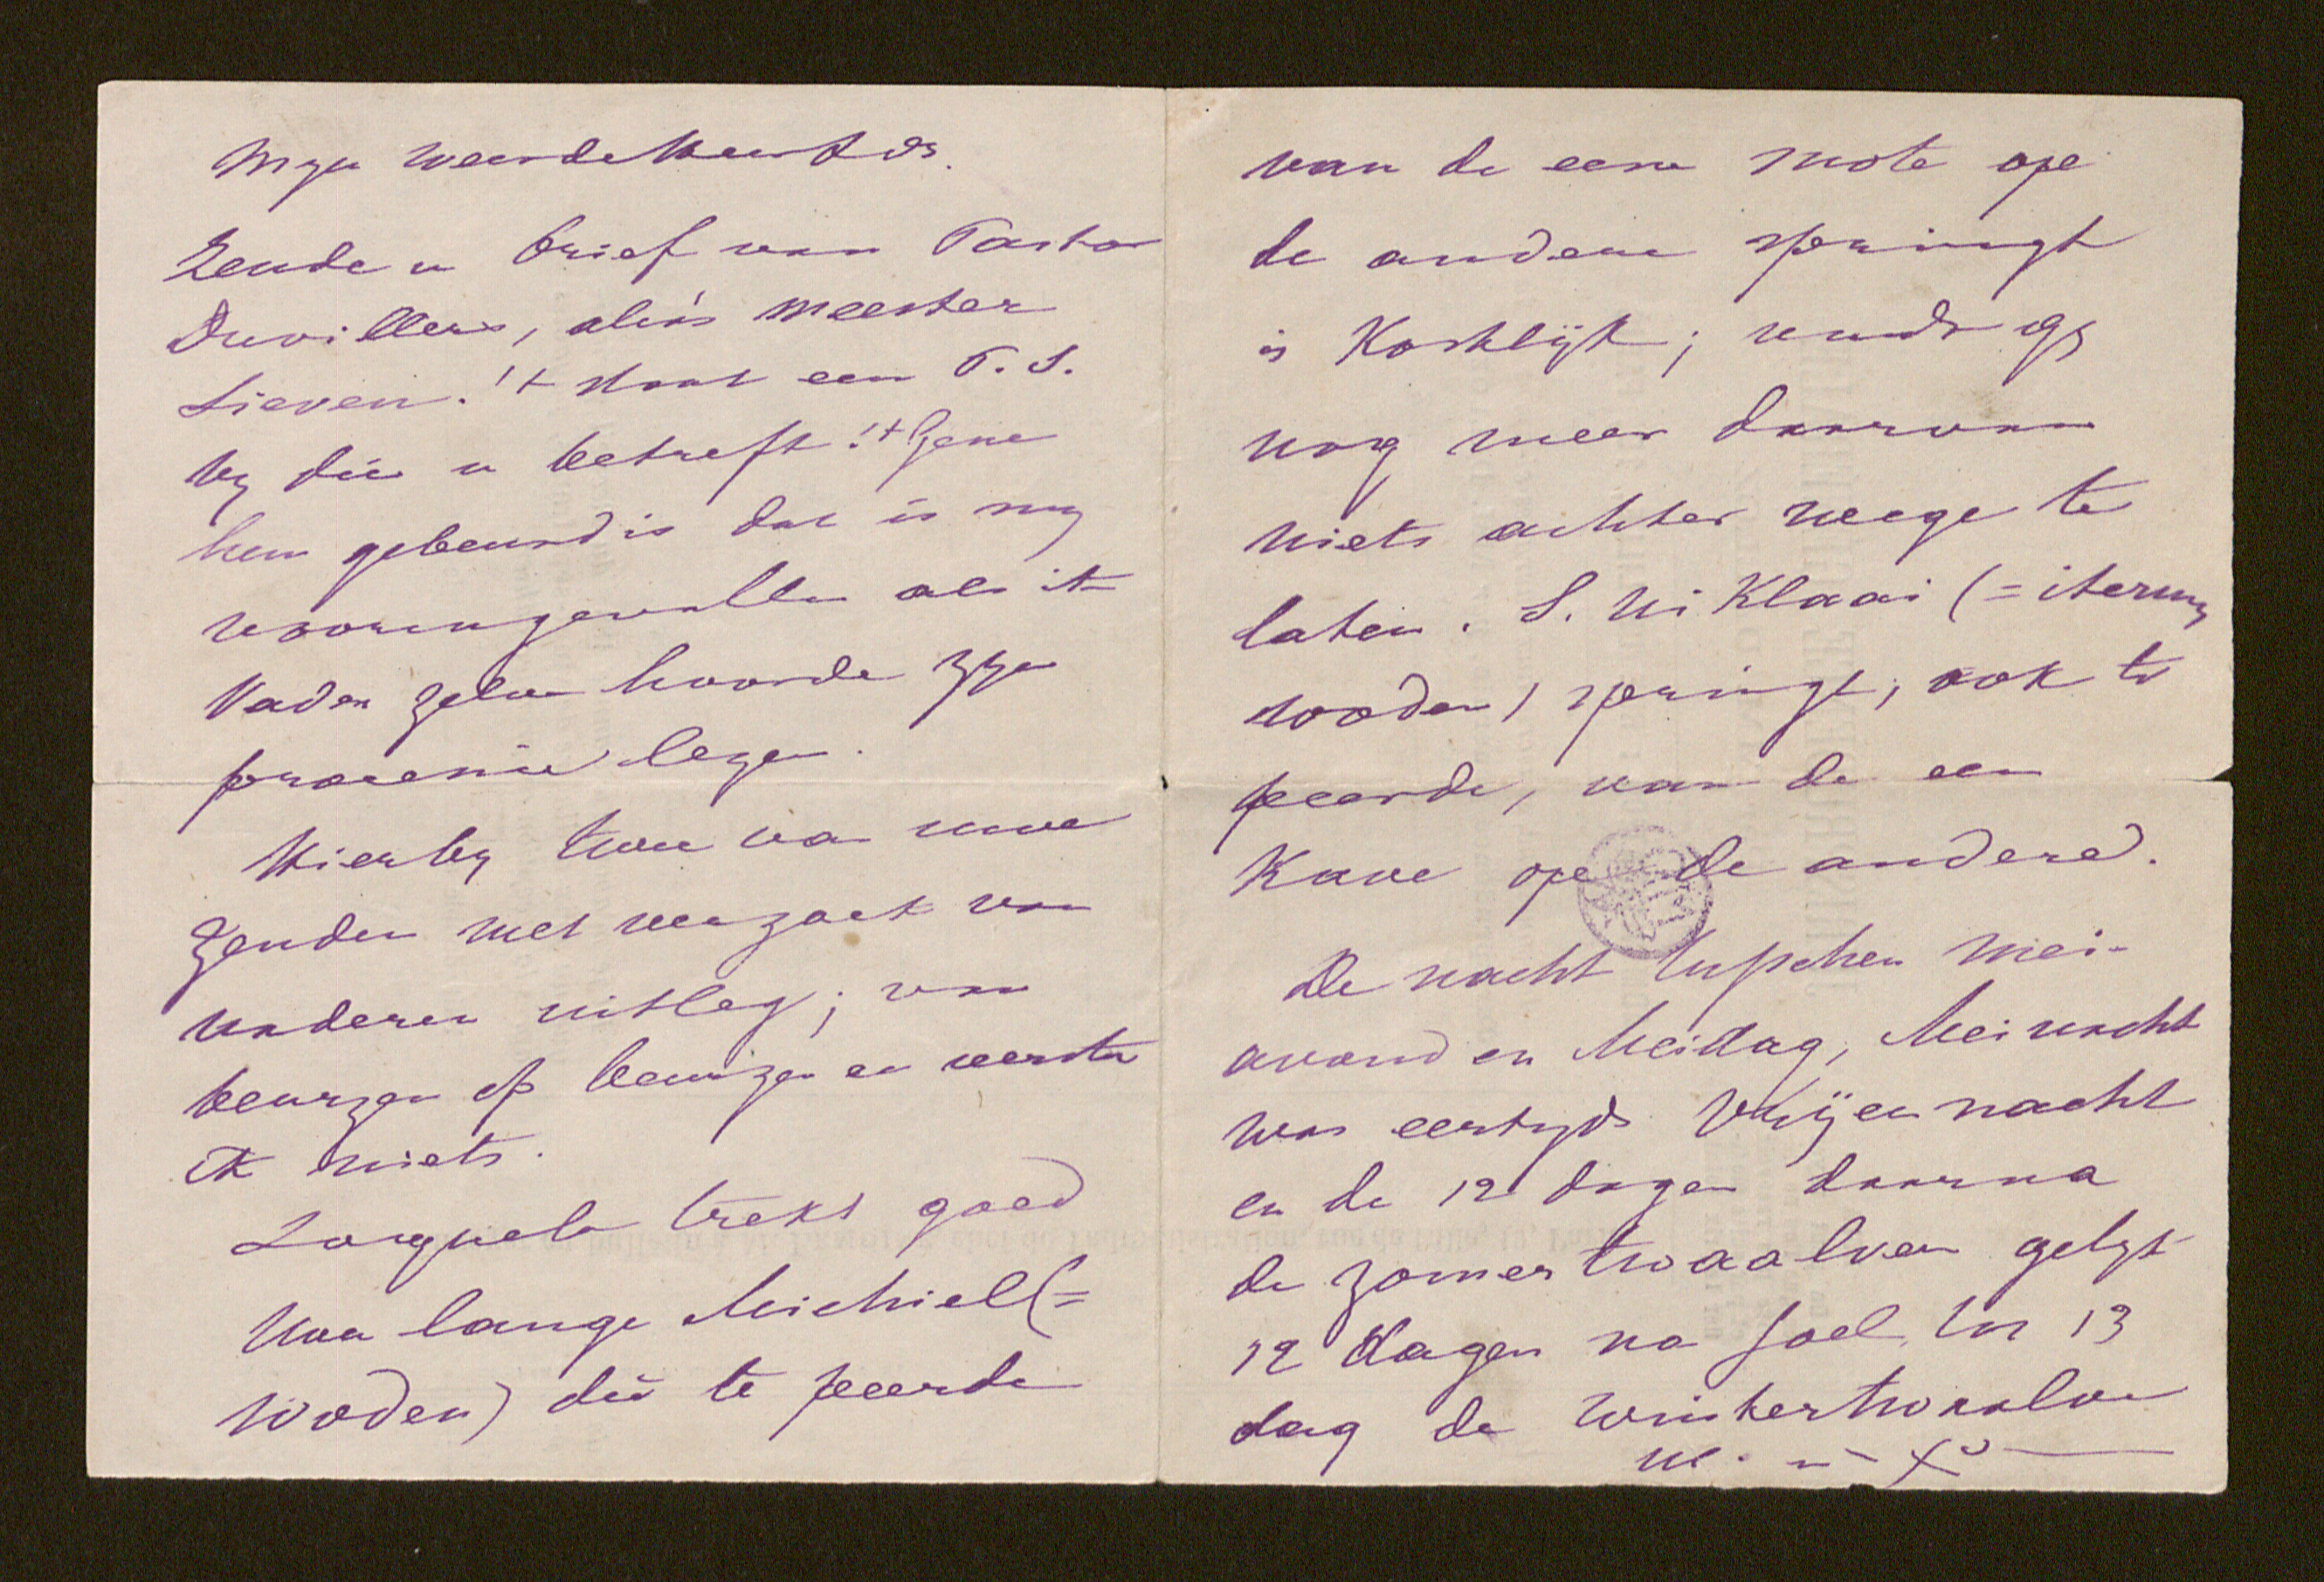 Myn weerde
Zende u brief van Pastor
Duvillers, aliàs meester
Lieven. 't staat een P.S.
by die u betreft. 't Gene
hem gebeurd is dat is my
vooren gevallen als ik
Vader zelve hoorde zyn
lezen.
Hierby twee van uwe
zenden met verzoek van
naderen uitleg; van
beurzen of en versta
ik niets.
trekt goed
lange Michiel (=
Woden) die te peerde
van de eene mote ope
de andere springt
is Kostelijk; vindt gy
nog meer daarvan
niets achter weege te
laten. S. Niklaai (= iterum
woden) springt, ook te
peerde, van de een
Kave ope de andere.
De nacht tusschen Mei-
avond en Meidag, Meinacht
was eertyds Vrijen nacht
en de 12 dagen daarna
de zomertwaalven gelyk
12 dagen na Joel tot 13
dag de wintertwaalven